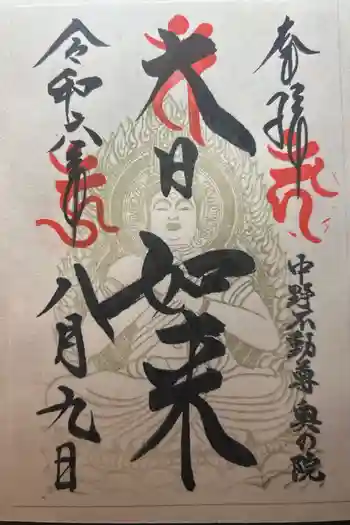 奉拝
中野不動尊奥の院
大日如来
令和六年
八月九日